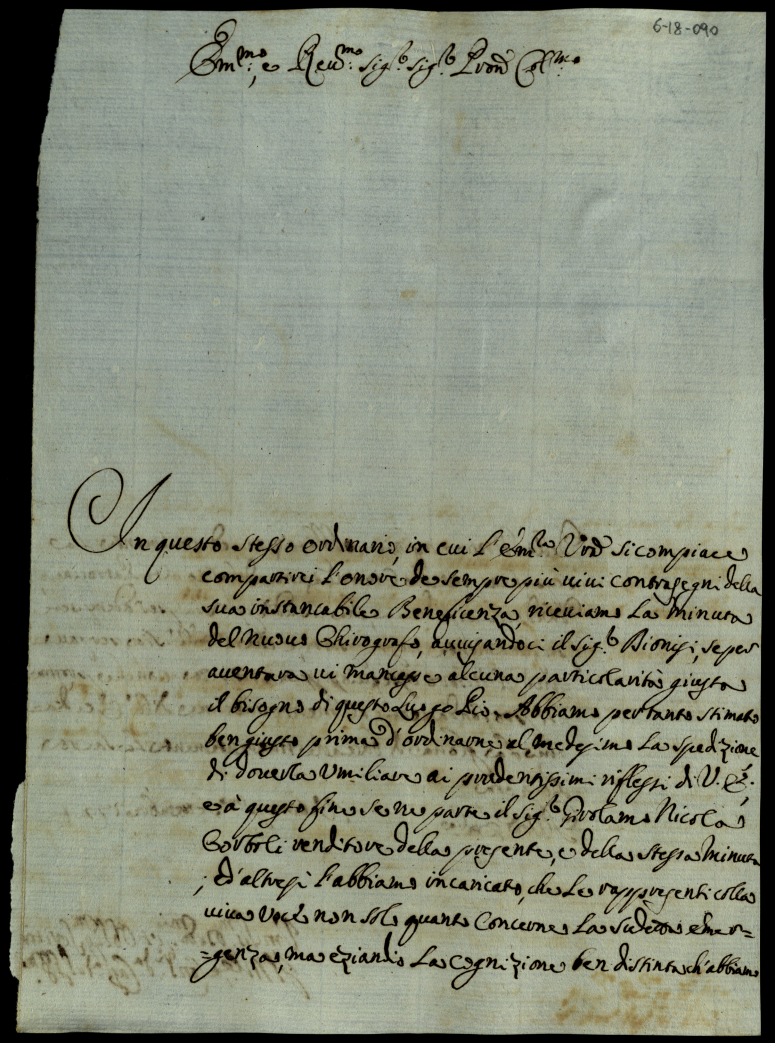 6-18-090
Em.mo, e Reu.mo Sig.r Sig.r Pron Col.mo
In questo stesso ordinario, in cui l'Em.za Vra si compiace
compartirci l'onore de sempre più uiui contrasegni della
sua instancabile Beneficenza, riceuiamo la minuta
del nuouo Chirografo, auuisandoci il Sig.r Bionisi, se per
auentura ui mancasse alcuna particolarità giusta
il bisogno di questo Luogo Pio. Abbiamo pertanto stimato
ben giusto prima d'ordinarne al medesimo la spedizione
di douerla Vmiliare ai prudentissimi riflessi di V. E.
e à questo fine se ne parte il Sig.r Girolamo Nicola
renditore della presente, e della stessa minuta
; ed'altresì l'abbiamo incaricato, che le rappresenti colla
uiua uoce non solo quanto concerne la sudetta emer=
=genza, ma eziandio la cognizione ben distinta ch'abbiamo